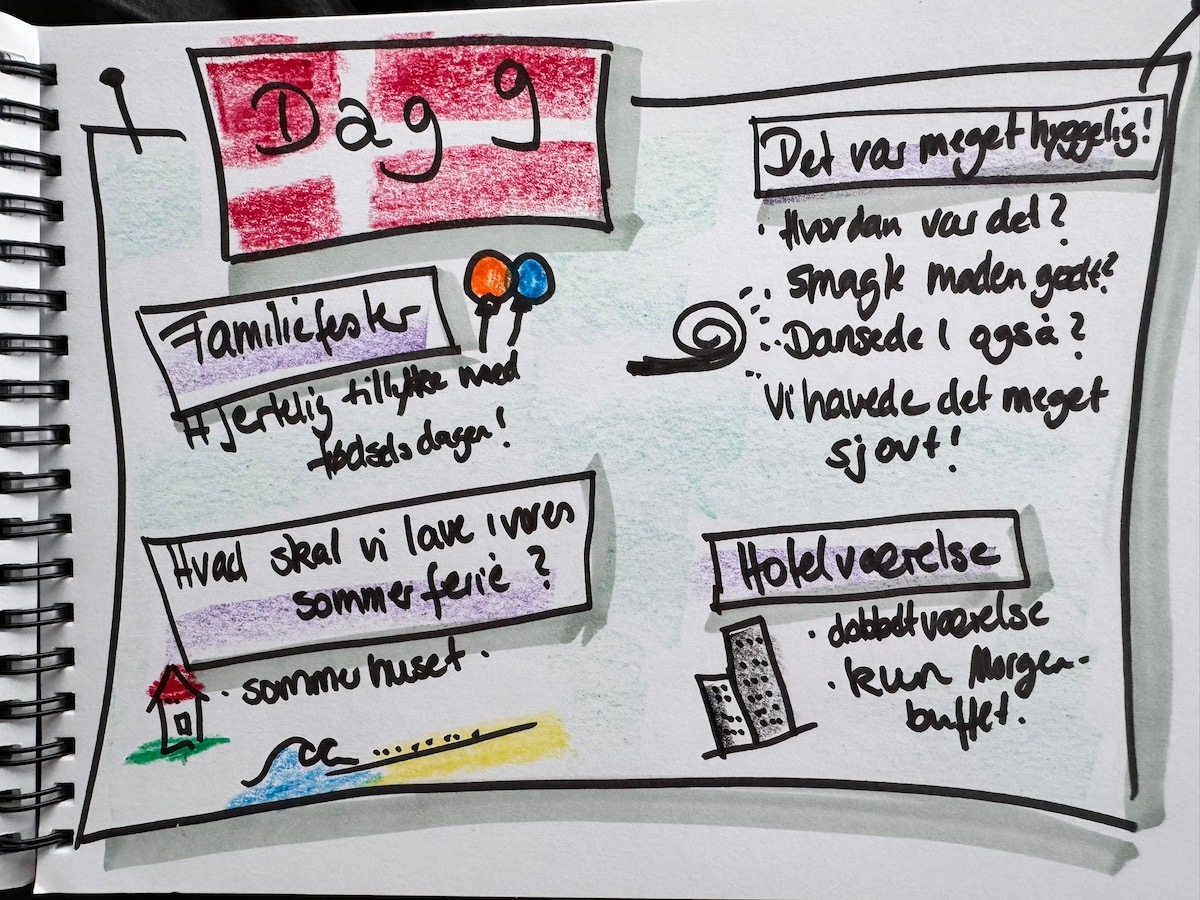 Dag 9
Familiefester
Hjertelig tillykke med
fødselsdagen!
Hvad skal vi lave i vores
sommerferie?
· sommerhuset.
Det var meget hyggelig!
· Hvordan var det?
smagte maden godt?
Dansede I også?
Vi havede det meget
sjovt!
Hotelværelse
· dobbeltværelse
· kun Morgen-
buffet.